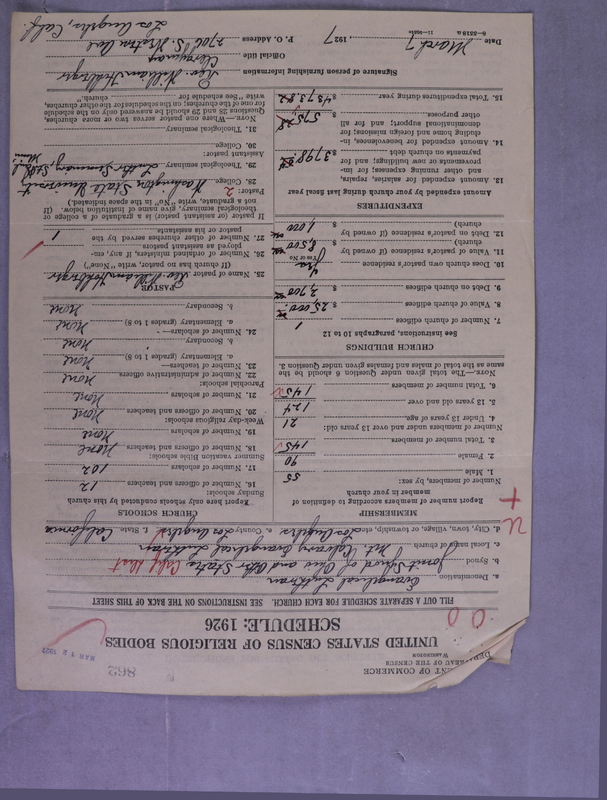 862
MAR 12 1927
DEPARTMENT OF COMMERCE
BUREAU OF THE CENSUS
WASHINGTON
UNITED STATES CENSUS OF RELIGIOUS BODIES
SCHEDULE: 1926
FILL OUT A SEPARATE SCHEDULE FOR EACH CHURCH. SEE INSTRUCTIONS ON THE BACK OF THIS SHEET
a. Denomination Evangelical Lutheran
b. Synod Joint Synod of Ohio and other States Calif Dist
c. Local name of church Mt. Calvary Evangelical Lutheran
d. City, town, village, or township, etc. Los Angeles e. County Los Angeles f. State California
MEMBERSHIP
Report number of members according to definition of
member in your church
Number of members, by sex:
1. Male 55
2. Female 90
3. Total number of members 145
Number of members under and over 13 years old:
4. Under 13 years of age 21
5. 13 years old and over 124
6. Total number of members 145
NOTE.—The total given under Question 6 should be the
same as the total of males and females given under Question 3.
CHURCH BUILDINGS
See instructions, paragraphs 10 to 12
7. Number of church edifices 1
8. Value of church edifices $ 25,000.
9. Debt on church edifices $ 2,700
10. Does church own pastor's residence Yes
(Yes or No)
11. Value of pastor's residence (if owned by
church) $ 8,500
12. Debt on pastor's residence (if owned by
church) $ 1,000
EXPENDITURES
Amount expended by your church during last fiscal year
13. Amount expended for salaries, repairs,
and other running expenses; for im-
provements or new building; and for
payments on church debt $
14. Amount expended for benevolences, in-
cluding home and foreign missions; for
denominational support; and for all
other purposes $
15. Total expenditures during year $ 4373.82
CHURCH SCHOOLS
Report here only schools conducted by this church
Sunday schools:
16. Number of officers and teachers 12
17. Number of scholars 102
Summer vacation Bible schools:
18. Number of officers and teachers None
19. Number of scholars None
Week-day religious schools:
20. Number of officers and teachers None
21. Number of scholars None
Parochial schools:
22. Number of administrative officers None
23. Number of teachers—
a. Elementary (grades 1 to 8) None
b. Secondary None
24. Number of scholars—
a. Elementary (grades 1 to 8) None
b. Secondary None
PASTOR
25. Name of pastor
(If church has no pastor, write "None")
26. Number of ordained ministers, if any, em-
ployed as assistant pastors
27. Number of other churches served by the
pastor or his assistants 1
If pastor (or assistant pastor) is a graduate of a college or
theological seminary, give name of institution below. (If
not a graduate, write "No" in the space indicated.)
Pastor: 2
28. College Washington State University
29. Theological seminary Luther Seminary, St. Paul Minn.
Assistant pastor:
30. College
31. Theological seminary
NOTE.—Where one pastor serves two or more churches,
Questions 28 and 29 should be answered only on the schedule
for one of the churches; on the schedules for the other churches,
write "See schedule for church."
Signature of person furnishing information
Official title Clergyman
P. O. Address 2706 S.
Los Angeles, Calif.
Date March 7, 1927
8-5518 a